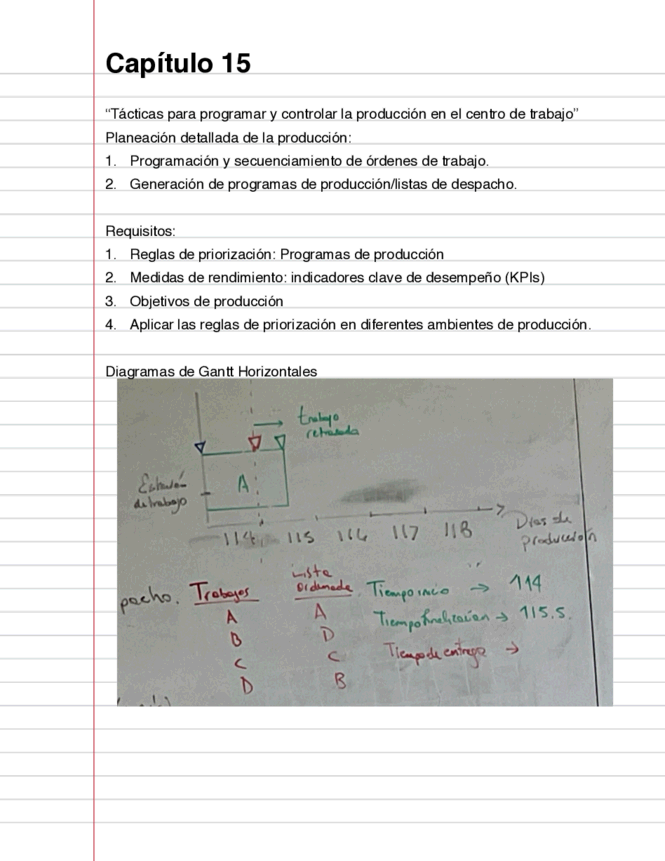 Capítulo 15
“Tácticas para programar y controlar la producción en el centro de trabajo”
Planeación detallada de la producción:
1. Programación y secuenciamiento de órdenes de trabajo.
2. Generación de programas de producción/listas de despacho.
Requisitos:
1. Reglas de priorización: Programas de producción
2. Medidas de rendimiento: indicadores clave de desempeño (KPIs)
3. Objetivos de producción
4. Aplicar las reglas de priorización en diferentes ambientes de producción.
Diagramas de Gantt Horizontales
trabajo
retrasada
Estación
de trabajo
A
114 115 116 117 118
Días de
producción
pacho.
Trabajos
A
B
C
D
Lista
Ordenada
A
D
C
B
Tiempo inicio → 114
Tiempo finalización → 115.5.
Tiempo de entrega →